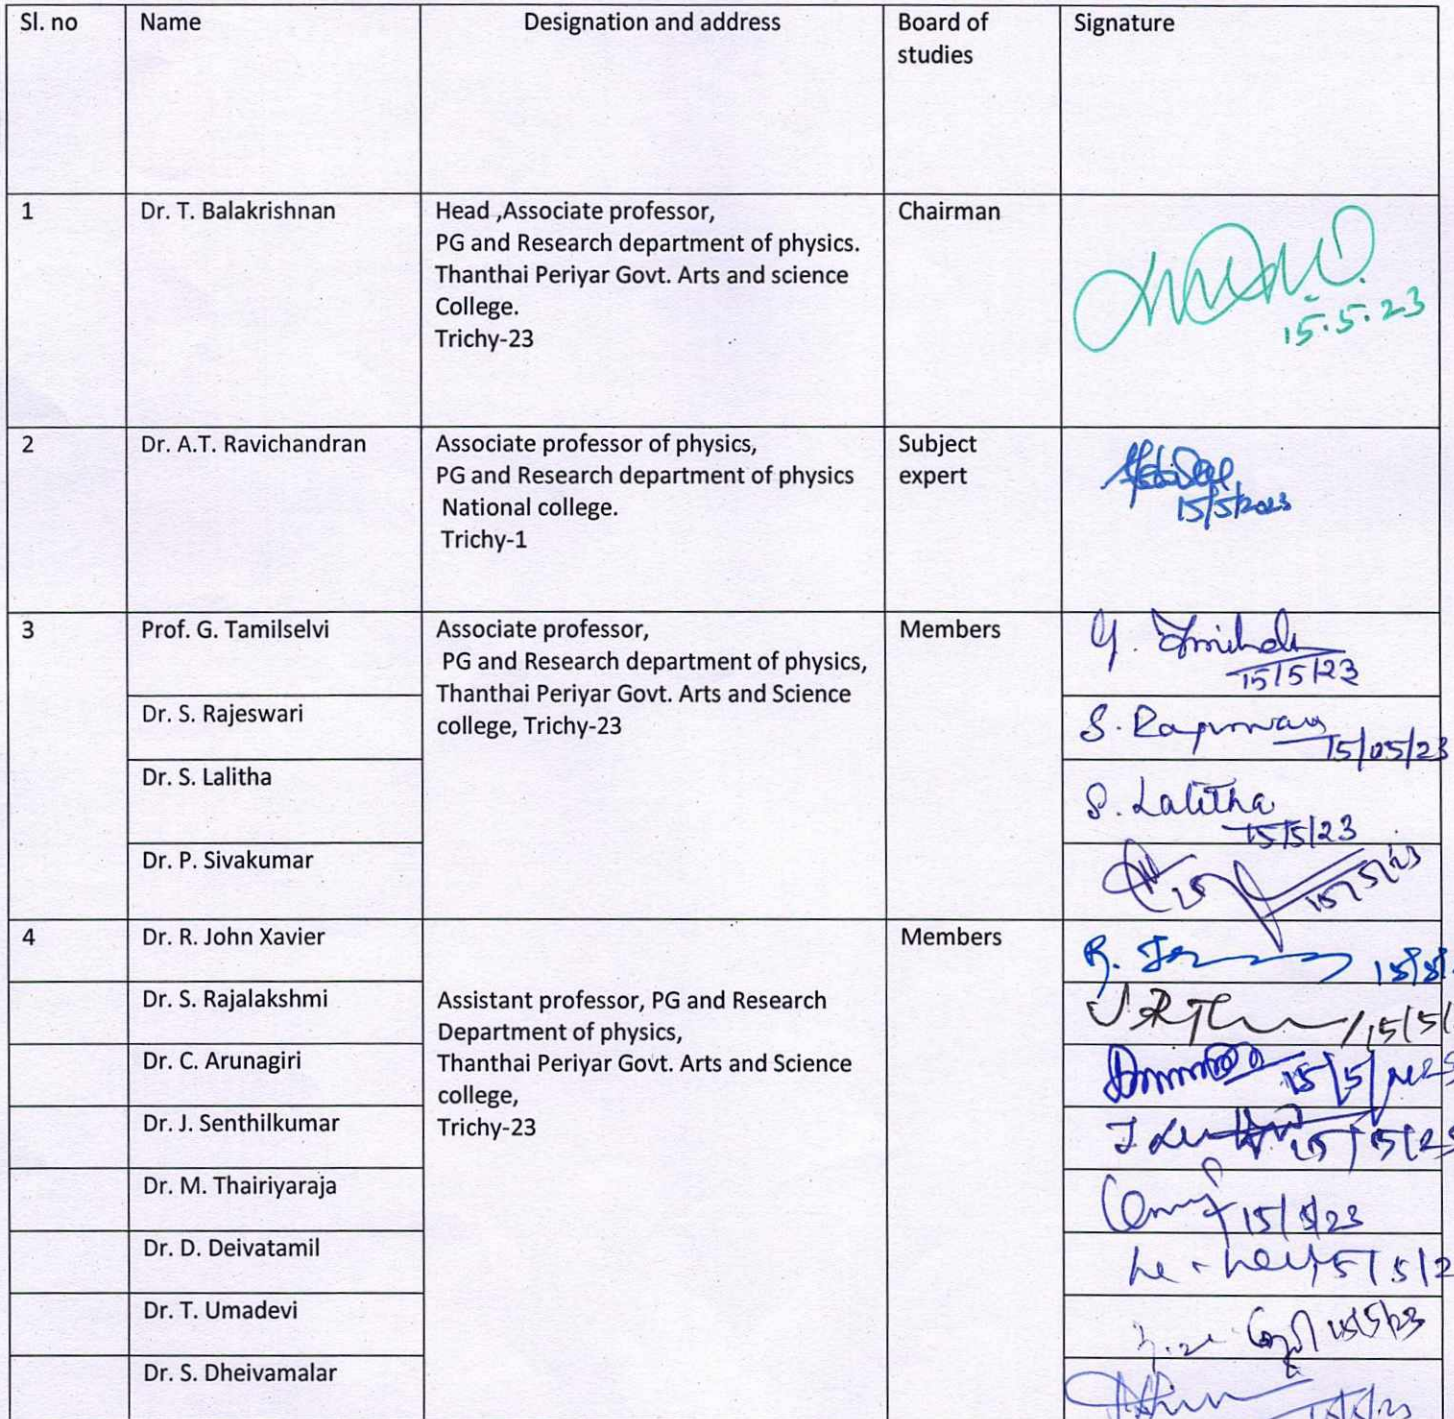 Sl. no Name Designation and address Board of studies Signature
1 Dr. T. Balakrishnan Head ,Associate professor, Chairman
PG and Research department of physics.
Thanthai Periyar Govt. Arts and science
College.
Trichy-23
15.5.23
2 Dr. A.T. Ravichandran Associate professor of physics, Subject expert
PG and Research department of physics
National college.
Trichy-1
15/5/2023
3 Prof. G. Tamilselvi Associate professor, Members
PG and Research department of physics,
Thanthai Periyar Govt. Arts and Science
college, Trichy-23
G.
15/5/23
Dr. S. Rajeswari
S. 15/05/23
Dr. S. Lalitha
S. Lalitha
15/5/23
Dr. P. Sivakumar
15/5/23
4 Dr. R. John Xavier Members
R.
Dr. S. Rajalakshmi
Assistant professor, PG and Research
Department of physics,
Thanthai Periyar Govt. Arts and Science
college,
Trichy-23
Dr. C. Arunagiri
Dr. J. Senthilkumar
Dr. M. Thairiyaraja
15/5/23
Dr. D. Deivatamil
Dr. T. Umadevi
15/5/23
Dr. S. Dheivamalar